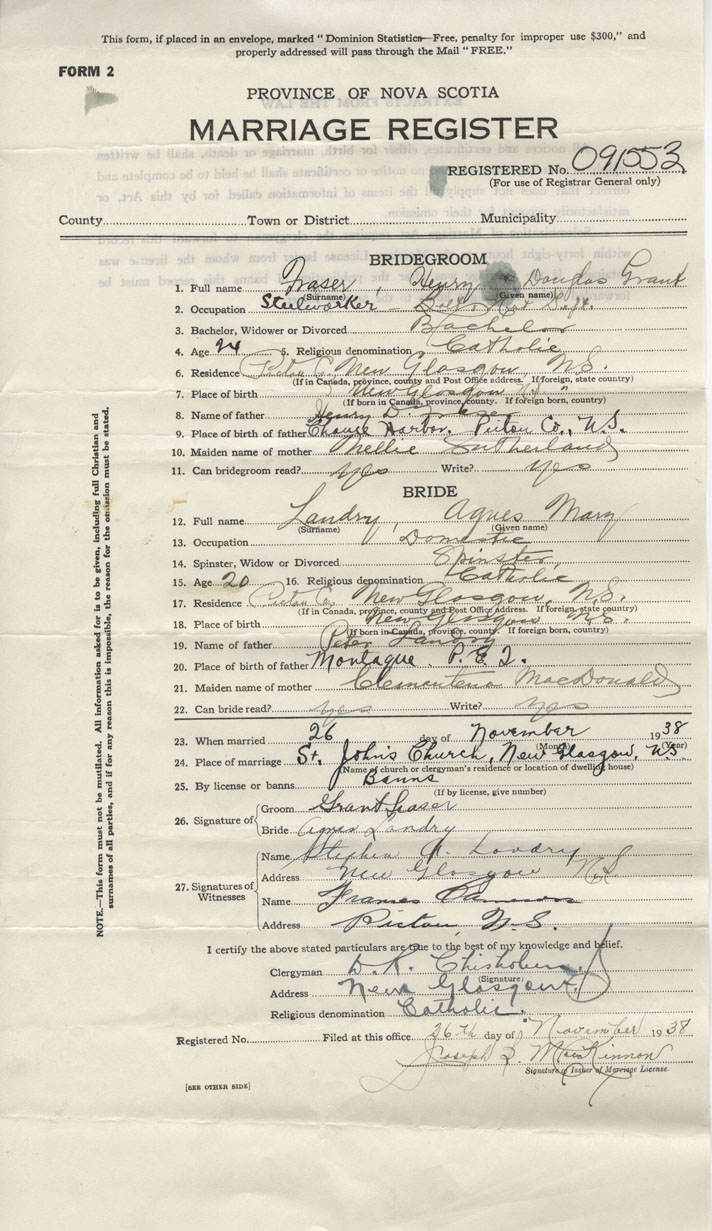 This form, if placed in an envelope, marked "Dominion Statistics—Free, penalty for improper use $300," and
properly addressed will pass through the Mail "FREE."
FORM 2
PROVINCE OF NOVA SCOTIA
MARRIAGE REGISTER
REGISTERED No. 091553
(For use of Registrar General only)
County Town or District Municipality
BRIDEGROOM
1. Full name Fraser, Henry Douglas Grant
(Surname) (Given name)
2. Occupation Steelworker
3. Bachelor, Widower or Divorced Bachelor
4. Age 24 5. Religious denomination Catholic
6. Residence Pictou Co. New Glasgow, N.S.
(If in Canada, province, county and Post Office address. If foreign, state country)
7. Place of birth New Glasgow N.S.
(If born in Canada, province, county. If foreign born, country)
8. Name of father Henry D. Fraser
9. Place of birth of father Chance Harbor, Pictou Co., N.S.
10. Maiden name of mother Nellie Sutherland
11. Can bridegroom read? yes Write? yes
BRIDE
12. Full name Landry, Agnes Mary
(Surname) (Given name)
13. Occupation Domestic
14. Spinster, Widow or Divorced Spinster
15. Age 20 16. Religious denomination Catholic
17. Residence Pictou Co. New Glasgow, N.S.
(If in Canada, province, county and Post Office address. If foreign, state country)
18. Place of birth New Glasgow N.S.
(If born in Canada, province, county. If foreign born, country)
19. Name of father Peter Landry
20. Place of birth of father Montague, P.E.I.
21. Maiden name of mother Clementena MacDonald
22. Can bride read? yes Write? yes
23. When married 26 day of November 1938
(Month) (Year)
24. Place of marriage St. John's Church, New Glasgow, N.S.
(Name of church or clergyman's residence or location of dwelling house)
25. By license or banns Banns
(If by license, give number)
26. Signature of
Groom Grant Fraser
Bride Agnes Landry
27. Signatures of Witnesses
Name Stephen A. Landry
Address New Glasgow N.S.
Name Frances
Address Pictou, N.S.
I certify the above stated particulars are true to the best of my knowledge and belief.
Clergyman D. R. Chisholm
(Signature)
Address New Glasgow
Religious denomination Catholic
Registered No. Filed at this office 26th day of November 1938
Joseph D. MacKinnon
Signature of Issuer of Marriage License.
[SEE OTHER SIDE]
NOTE.—This form must not be mutilated. All information asked for is to be given, including full Christian and
surnames of all parties, and if for any reason this is impossible, the reason for the omission must be stated.